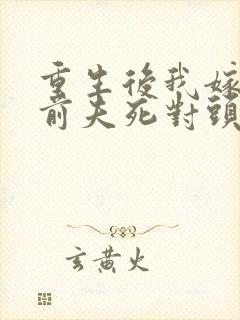 重生後我嫁
前夫死對頭
玄黃火